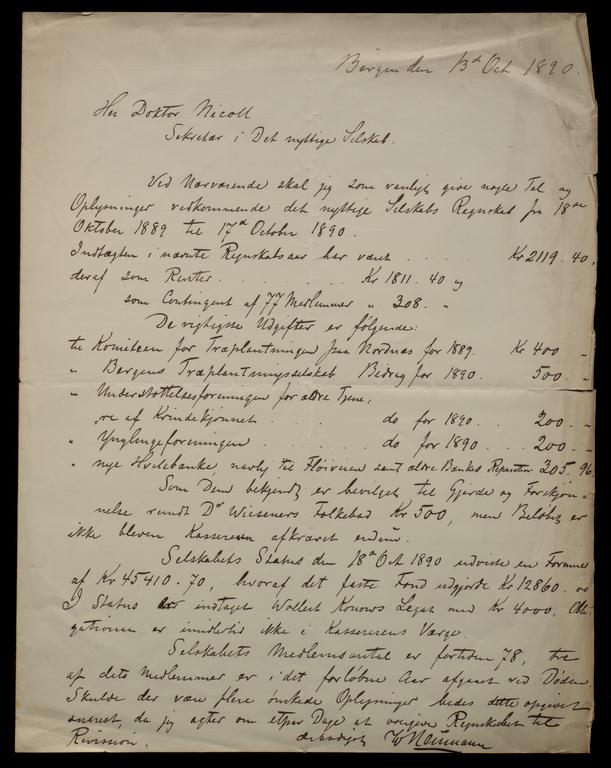 Bergen den 13de Oct 1890.
Her Doktor Nicoll
Sekretær i Det nyttige Selskab.
Ved Nærværende skal jeg som vanligt give nogle Tal og
Oplysninger vedkommende det nyttige Selskabs Regnskab fra 18de
Oktober 1889 til 17de October 1890.
Indtægten i nævnte Regnskabsaar har været . . . . Kr 2119. 40.
deraf som Renter . . . . . Kr 1811. 40 og
som Contingent af 77 Medlemmer " 308. "
De vigtigste Udgifter er følgende:
til Komiteen for Træplantningen paa Nordnæs for 1889. Kr 400 –
" Bergens Træplantningsselskab Bidrag for 1890. 500. –
" Understøttelsesforeningen for ældre Tjene:
re af Kvindekjønnet . . . do for 1890 . . 200. –
" Ynglingeforeningen . . . do for 1890 . . 200 –
" nye Hvilebænke, navlig til Fløiveien samt ældre Bænkes Reparation 305. 96
Som Dem bekjendt er bevilget til Gjerde og Forskjøn-
nelse rundt Dr Wieseners Folkebad Kr 500, men Beløbet er
ikke bleven Kassereren afkrævet endnu.
Selskabets Status den 18de Oct 1890 udviste en Formue
af Kr 45410. 70, hvoraf det faste Fond udgjorde Kr 12860. 00
I Status er indtaget Wollert Konows Legat med Kr 4000, Obli-
gationen er imidlertid ikke i Kassererens Værge.
Selskabets Medlemsantal er fortiden 78, tre
af dets Medlemmer er i det forløbne Aar afgaaet ved Døden.
Skulde der være flere ønskede Oplysninger bedes dette opgivet
snarest, da jeg agter om etpar Dage at overgive Regnskabet til
Revision. ærbødigst W Neumann